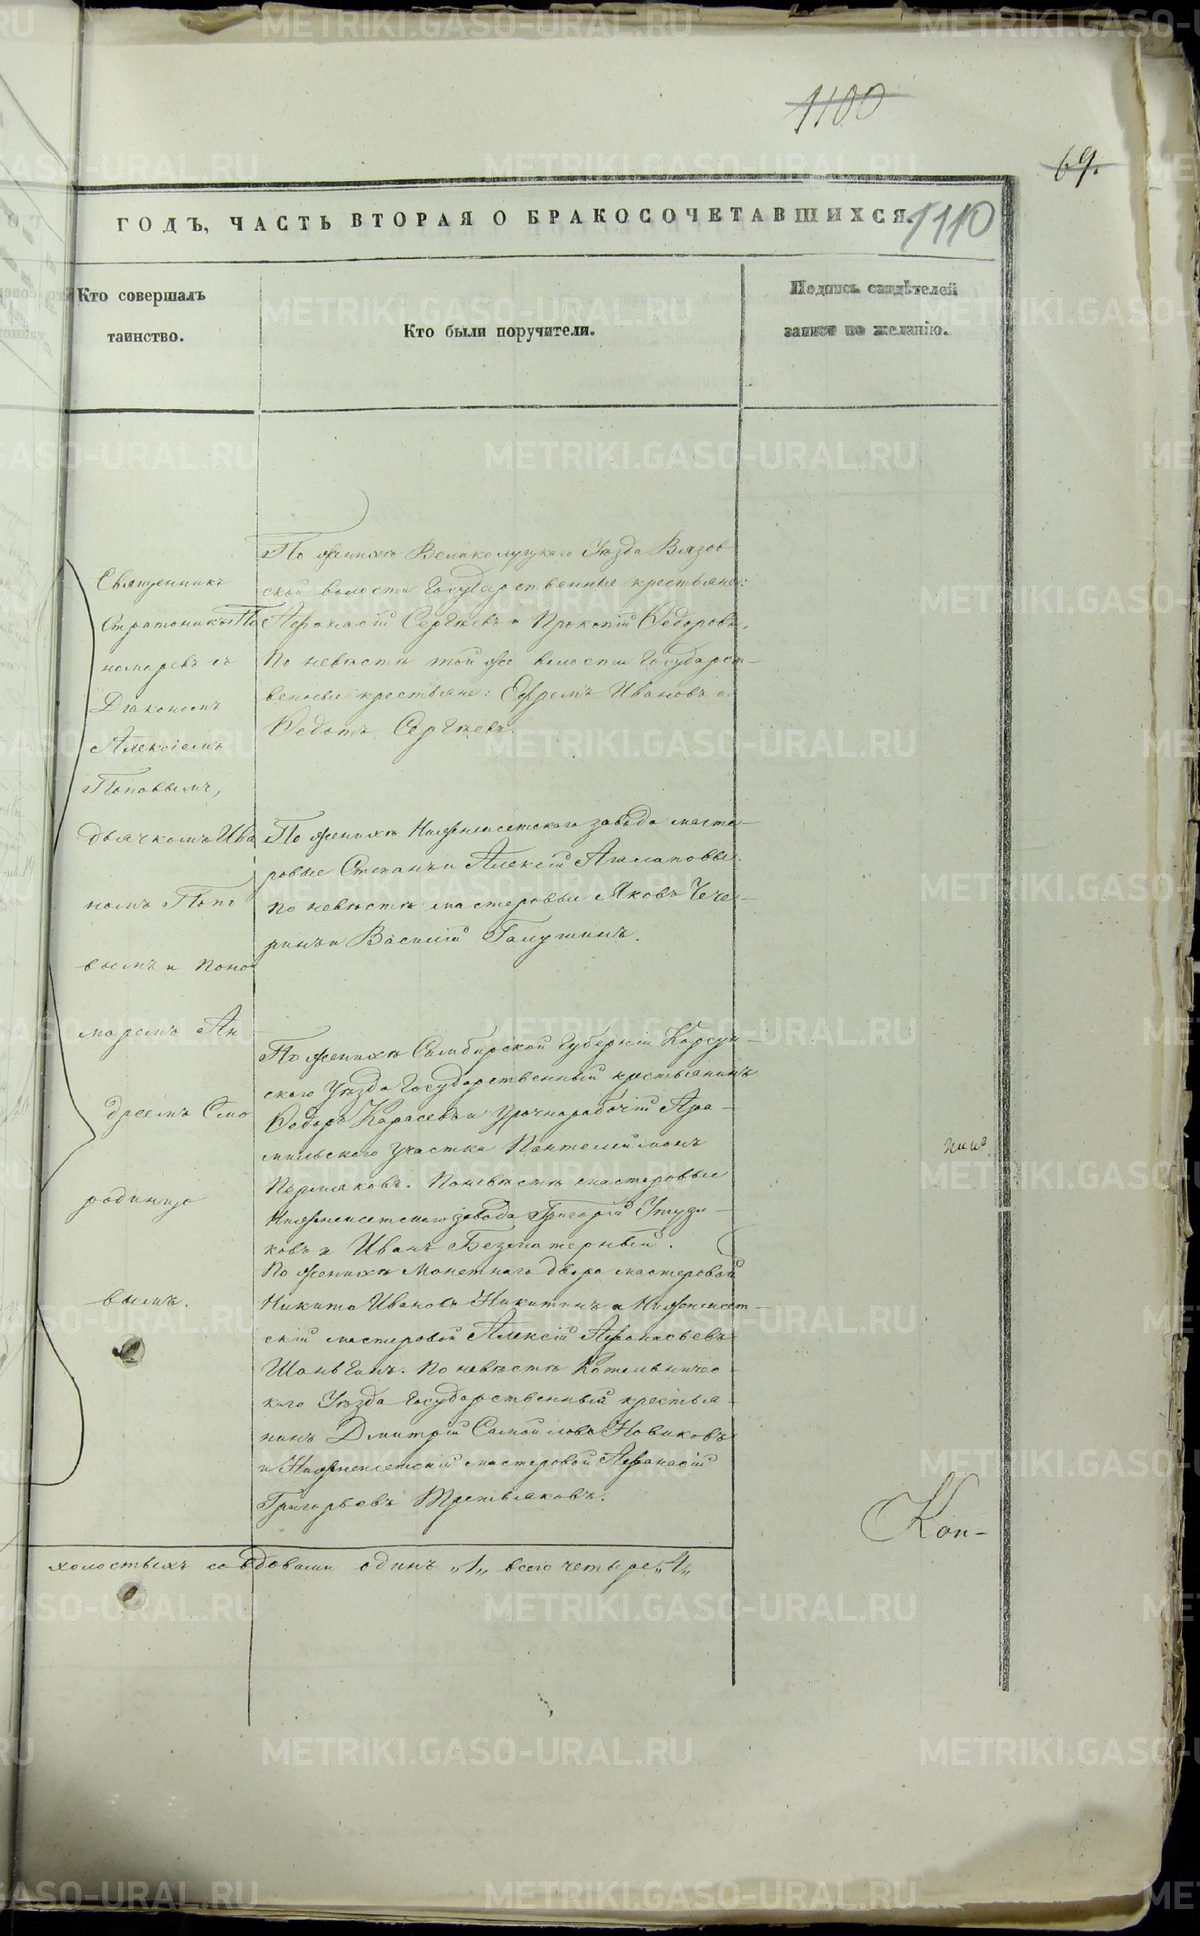 1100
69.
ГОДЪ, ЧАСТЬ ВТОРАЯ О БРАКОСОЧЕТАВШИХСЯ.
1110
Кто совершалъ
таинство.
Кто были поручители.
Подпись свидѣтелей
записи по желанію.
Священникъ
Стратоникъ По
номаревъ съ
Діакономъ
Алексіемъ
Поповымъ,
дьячкомъ Ива
номъ Попо
вымъ и поно
маремъ Ан
дреемъ Смо
родинцо
вымъ.
По женихѣ Великолуцкаго Уѣзда Вязов
ской волости Государственные крестьяне:
Афанасій Сергѣевъ и Прокопій Ѳедоровъ.
По невѣстѣ той же волости Государст-
венные крестьяне: Ефремъ Ивановъ и
Ѳедотъ Сергѣевъ.
По женихѣ Нижнеисетскаго завода масте-
ровые Степанъ и Алексѣй
по невѣстѣ мастеровые Яковъ Чече-
ринъ и Василій Галушинъ.
По женихѣ Симбирской Губерніи Корсун-
скаго Уѣзда Государственный крестьянинъ
Ѳедоръ Карасевъ и Урочнорабочій Ара-
мильскаго участка Пантелеймонъ
Пермяковъ. По невѣстѣ мастеровые
Нижнеисетскаго завода Григорій
и Иванъ Безматерный.
По женихѣ Монетнаго двора мастеровой
Никита Ивановъ Никитинъ и Нижнеисет-
скій мастеровой Алексій Афанасьевъ
Шаньгинъ. По невѣстѣ Котельничес-
каго Уѣзда Государственный крестья-
нинъ Дмитрій Самойловъ Новиковъ
и Нижнеисетскій мастеровой Афанасій
Григорьевъ Третьяковъ.
Кон-
холостыхъ со вдовами одинъ „1„ всего четыре „4„
METRIKI.GASO-URAL.RU